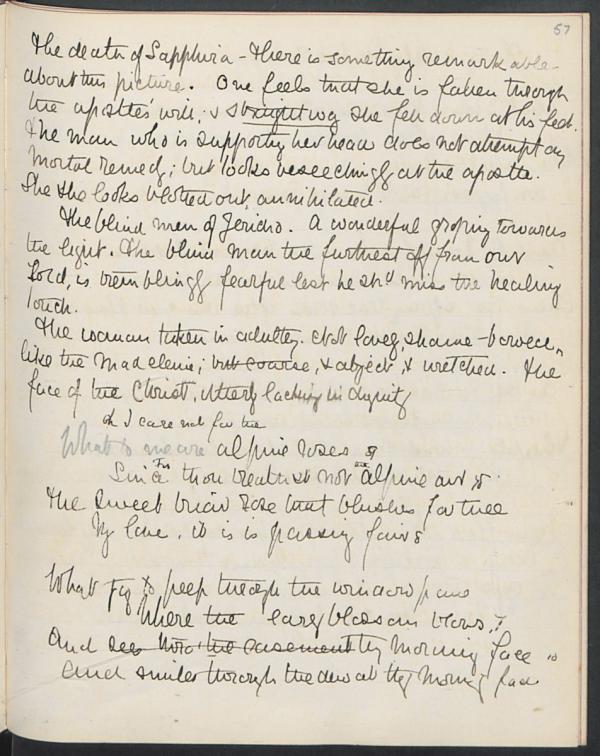 57
The death of Sapphira - There is something remarkable
about this picture. One feels that she is fallen through
the apostles' will, & straightway she fell down at his feet.
The man who is supporting her head does not attempt any
mortal remedy; but looks beseechingly at the apostle.
She looks blotted out, annihilated.
The blind men of Jericho. A wonderful groping towards
the light. The blind man the furthest off from our
Lord, is tremblingly fearful lest he shd miss the healing
touch.
The woman taken in adultery. Not lovely, shame-bowed,
like the Madeleine; but coarse, & abject, & wretched. The
face of the Christ, utterly lacking in dignity
oh I care not for the
What to me are alpine roses
Since thou breathest not alpine air
The sweet briar rose that blushes for thee
My love, it is passing fair
What joy to peep through the window pane
Where the early blossom blows,
And see into the casement thy morning face
And smiles through the dew at thy morning face